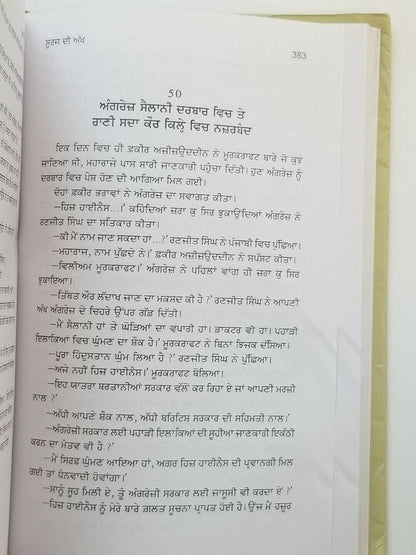 ਸੂਰਜ ਦੀ ਅੱਖ
383
50
ਅੰਗਰੇਜ਼ ਸੈਲਾਨੀ ਦਰਬਾਰ ਵਿਚ ਤੇ
ਰਾਣੀ ਸਦਾ ਕੌਰ ਕਿਲ੍ਹੇ ਵਿਚ ਨਜ਼ਰਬੰਦ
ਇਕ ਦਿਨ ਵਿਚ ਹੀ ਫ਼ਕੀਰ ਅਜ਼ੀਜ਼ਉਦਦੀਨ ਨੇ ਮੂਰਕਰਾਫਟ ਬਾਰੇ ਜੋ ਕੁਝ
ਜਾਣਿਆ ਸੀ, ਮਹਾਰਾਜੇ ਪਾਸ ਸਾਰੀ ਜਾਣਕਾਰੀ ਪਹੁੰਚਾ ਦਿੱਤੀ। ਹੁਣ ਅੰਗਰੇਜ਼ ਨੂੰ
ਦਰਬਾਰ ਵਿਚ ਪੇਸ਼ ਹੋਣ ਦੀ ਆਗਿਆ ਮਿਲ ਗਈ।
ਦੋਹਾਂ ਫ਼ਕੀਰ ਭਰਾਵਾਂ ਨੇ ਅੰਗਰੇਜ਼ ਦਾ ਸਵਾਗਤ ਕੀਤਾ।
–ਹਿਜ਼ ਹਾਈਨੈਸ...।' ਕਹਿੰਦਿਆਂ ਜ਼ਰਾ ਕੁ ਸਿਰ ਝੁਕਾਉਂਦਿਆਂ ਅੰਗਰੇਜ਼ ਨੇ
ਰਣਜੀਤ ਸਿੰਘ ਦਾ ਸਤਿਕਾਰ ਕੀਤਾ।
–ਕੀ ਮੈਂ ਨਾਮ ਜਾਣ ਸਕਦਾ ਹਾਂ...?' ਰਣਜੀਤ ਸਿੰਘ ਨੇ ਪੰਜਾਬੀ ਵਿਚ ਪੁੱਛਿਆ।
–ਮਹਾਰਾਜ, ਨਾਮ ਪੁੱਛਦੇ ਨੇ।' ਫ਼ਕੀਰ ਅਜ਼ੀਜ਼ਉਦਦੀਨ ਨੇ ਸਪੱਸ਼ਟ ਕੀਤਾ।
–ਵਿਲੀਅਮ ਮੂਰਕਰਾਫਟ।' ਅੰਗਰੇਜ਼ ਨੇ ਪਹਿਲਾਂ ਵਾਂਗ ਹੀ ਜ਼ਰਾ ਕੁ ਸਿਰ
ਝੁਕਾਇਆ।
–ਤਿੱਬਤ ਔਰ ਲੱਦਾਖ ਜਾਣ ਦਾ ਮਕਸਦ ਕੀ ਹੈ ?' ਰਣਜੀਤ ਸਿੰਘ ਨੇ ਆਪਣੀ
ਅੱਖ ਅੰਗਰੇਜ਼ ਦੇ ਚਿਹਰੇ ਉੱਪਰ ਗੱਡ ਦਿੱਤੀ।
–ਮੈਂ ਸੈਲਾਨੀ ਹਾਂ ਤੇ ਘੋੜਿਆਂ ਦਾ ਵਪਾਰੀ ਹਾਂ। ਡਾਕਟਰ ਵੀ ਹਾਂ। ਪਹਾੜੀ
ਇਲਾਕਿਆਂ ਵਿਚ ਘੁੰਮਣ ਦਾ ਸ਼ੌਕ ਹੈ।' ਮੂਰਕਰਾਫਟ ਨੇ ਬਿਨਾਂ ਝਿਜਕ ਦੱਸਿਆ।
–ਪੂਰਾ ਹਿੰਦੁਸਤਾਨ ਘੁੰਮ ਲਿਆ ਹੈ ?' ਰਣਜੀਤ ਸਿੰਘ ਨੇ ਪੁੱਛਿਆ।
–ਅਜੇ ਨਹੀਂ ਹਿਜ਼ ਹਾਈਨੈਸ।' ਮੂਰਕਰਾਫਟ ਬੋਲਿਆ।
–ਇਹ ਯਾਤਰਾ ਬਰਤਾਨੀਆਂ ਸਰਕਾਰ ਵੱਲੋਂ ਕਰ ਰਿਹਾ ਏ ਜਾਂ ਆਪਣੀ ਮਰਜ਼ੀ
ਨਾਲ ?'
–ਅੱਧੀ ਆਪਣੇ ਸ਼ੌਕ ਨਾਲ, ਅੱਧੀ ਬਰਿਟਿਸ਼ ਸਰਕਾਰ ਦੀ ਸਹਿਮਤੀ ਨਾਲ।'
–ਅੰਗਰੇਜ਼ੀ ਸਰਕਾਰ ਲਈ ਪਹਾੜੀ ਇਲਾਕਿਆਂ ਦੀ ਸੂਹੀਆ ਜਾਣਕਾਰੀ ਇਕੱਠੀ
ਕਰਨ ਦਾ ਮੰਤਵ ਵੀ ਹੈ ?'
–ਮੈਂ ਸਿਰਫ਼ ਘੁੰਮਣ ਆਇਆ ਹਾਂ, ਅਗਰ ਹਿਜ਼ ਹਾਈਨੈਸ ਦੀ ਪ੍ਰਵਾਨਗੀ ਮਿਲ
ਗਈ ਤਾਂ ਧੰਨਵਾਦੀ ਹੋਵਾਂਗਾ।'
–ਸਾਨੂੰ ਸੂਹ ਮਿਲੀ ਏ, ਤੂੰ ਅੰਗਰੇਜ਼ੀ ਸਰਕਾਰ ਲਈ ਜਾਸੂਸੀ ਵੀ ਕਰਦਾ ਏਂ ?'
–ਹਿਜ਼ ਹਾਈਨੈਸ ਨੂੰ ਮੇਰੇ ਬਾਰੇ ਗ਼ਲਤ ਸੂਚਨਾ ਪ੍ਰਾਪਤ ਹੋਈ ਹੈ। ਉਂਜ ਮੈਂ ਹਜ਼ੂਰ